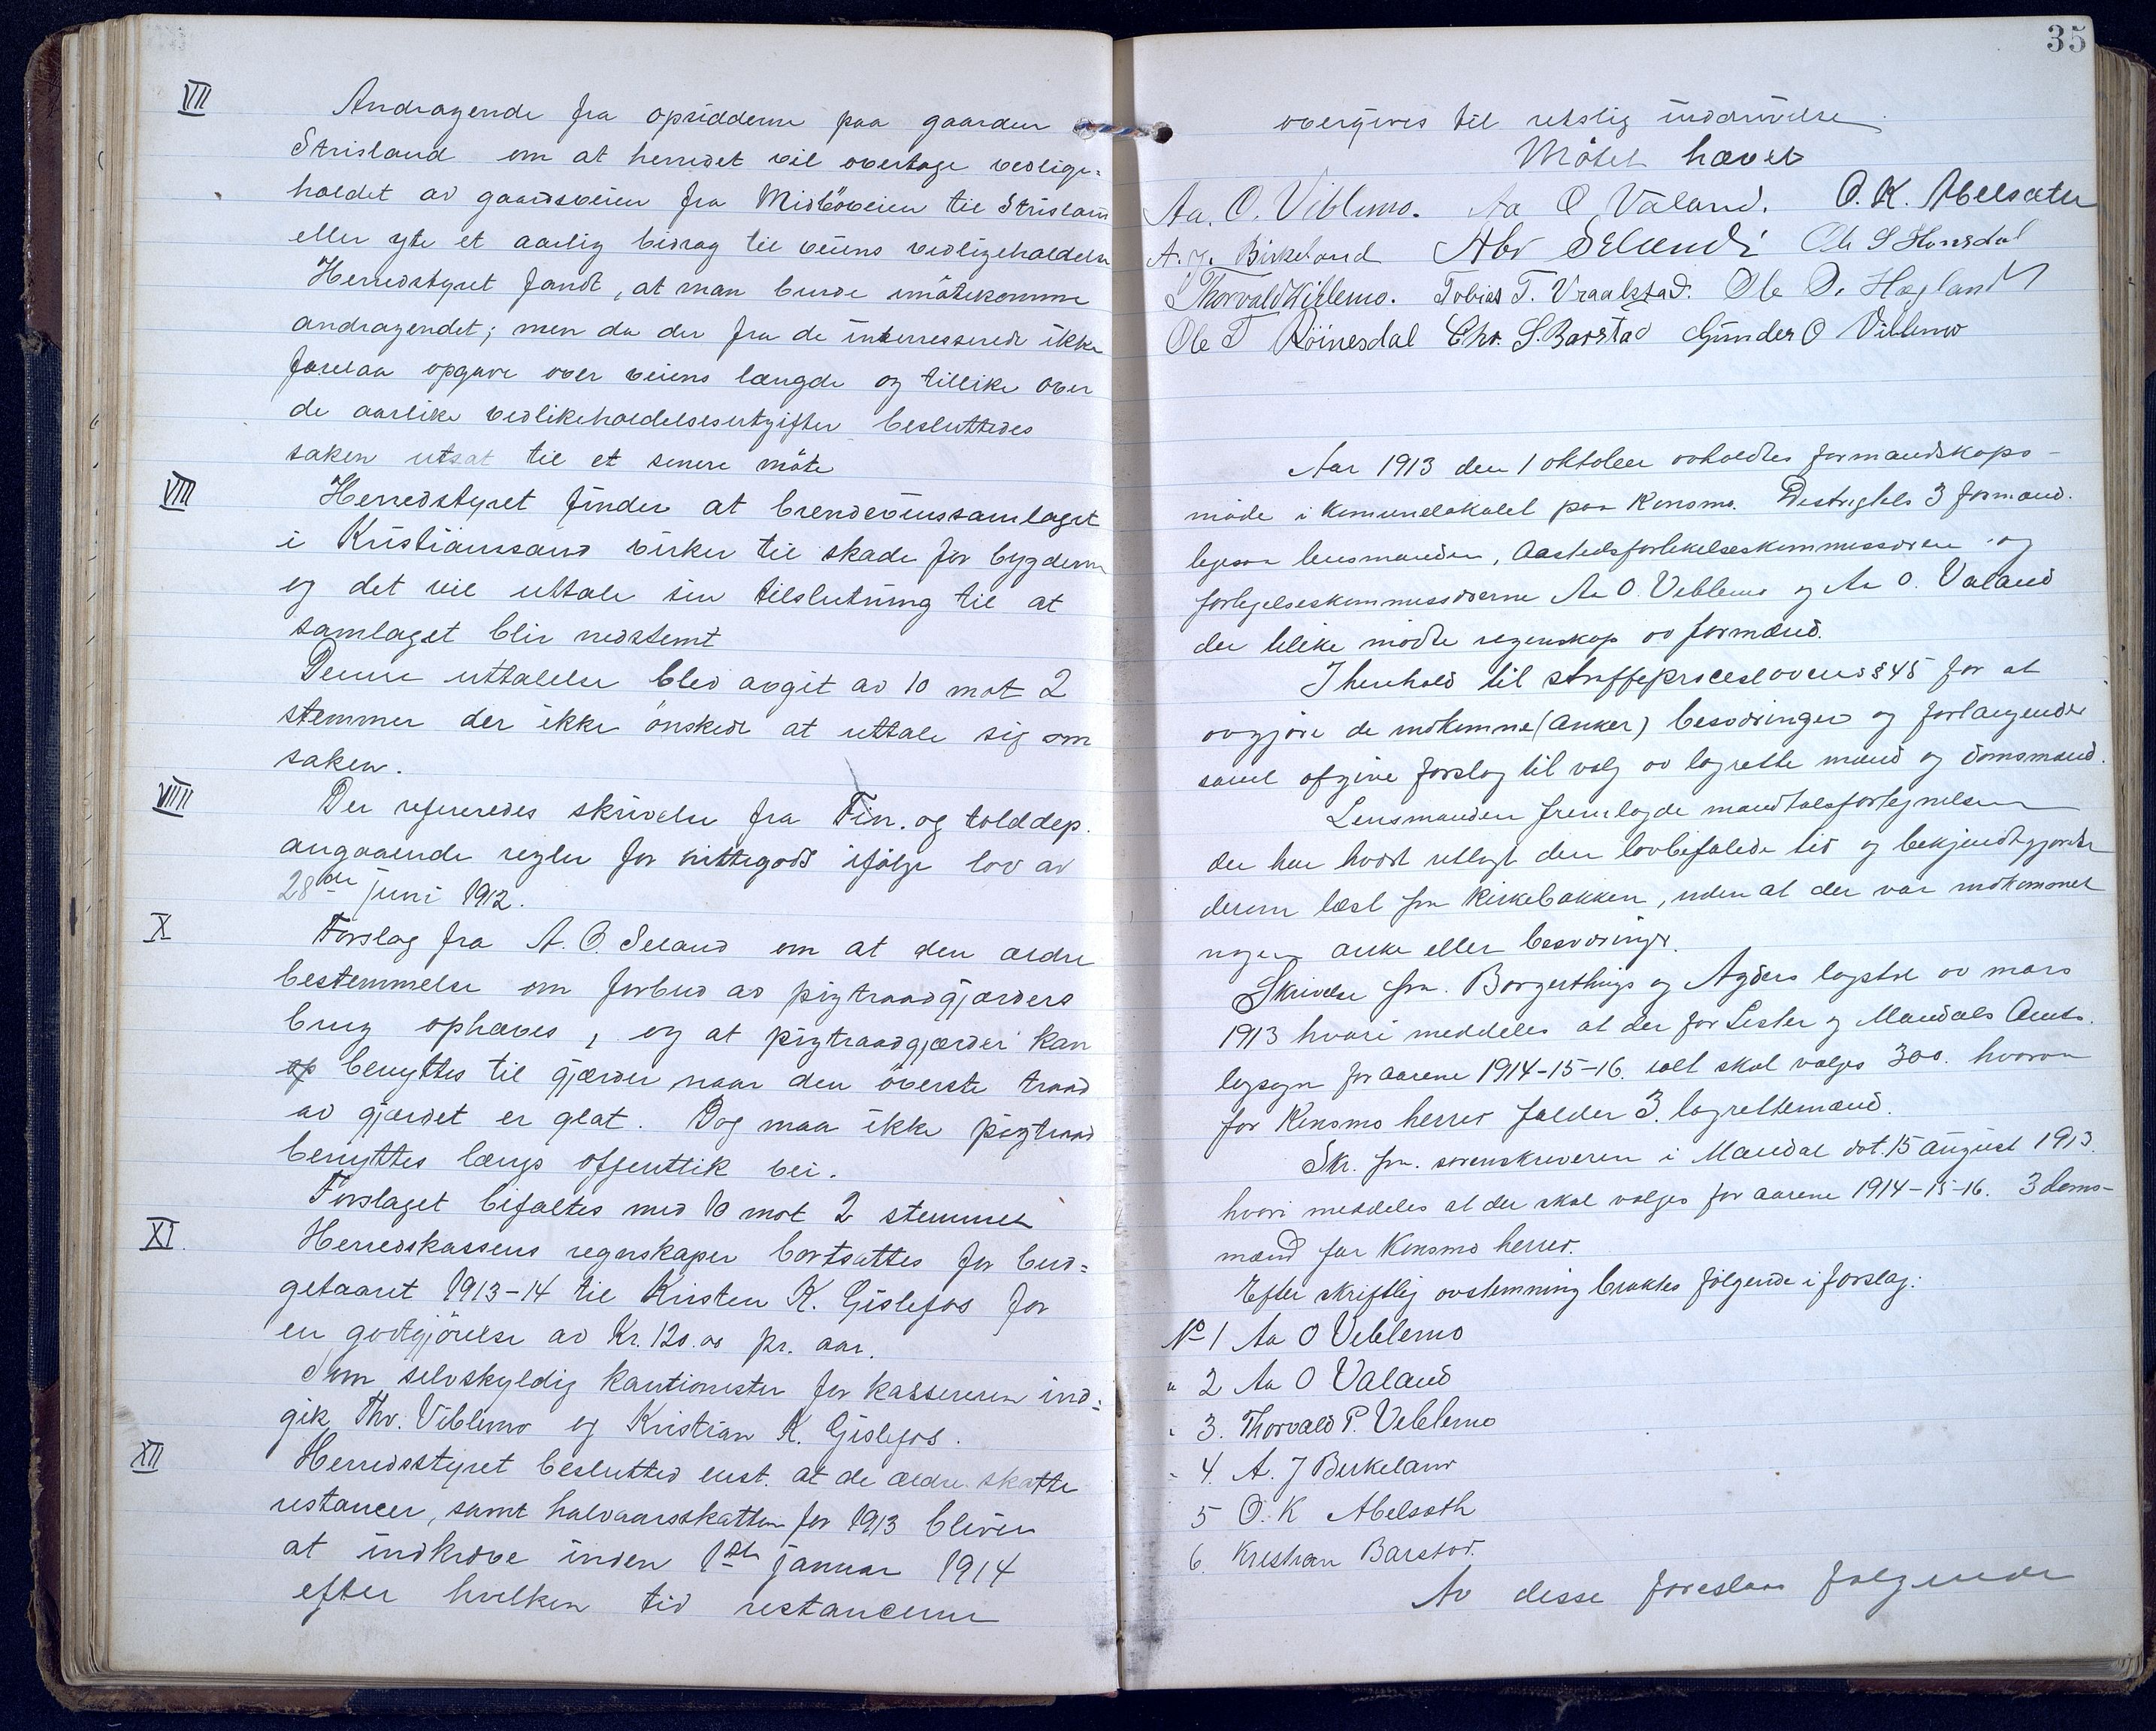 VII
Andragende fra opsidderne paa gaarden
Strisland om at herredet vil overtage vedlige=
holdet av gaardsveien fra Midböveien til Strisland
eller yte et aarlig bidrag til veiens vedligeholdelse
Herredstyret fandt, at man burde imötekomme
andragendet; men da der fra de interresserede ikke
forelaa opgave over veiens længde og tillike over
de aarlike vedlikeholdelsesutgifter besluttedes
saken utsat til et senere möte
VIII
Herredstyret finder at brendevinssamlaget
i Kristianssand virker til skade for bygderne
og det vil uttale sin tilslutning til at
samlaget blir nedstemt
Denne uttalelse blev avgit av 10 mot 2
stemmer der ikke önskede at uttale sig om
saken.
VIIII
Der refereredes skrivelse fra Fin. og tolddep.
angaaende regler for hittegods ifölge lov av
28de juni 1912.
X
Forslag fra A. O. Seland om at den ældre
bestemmelse om forbud av pigtraadgjærders
brug ophæves, og at pigtraadgjærder kan
op benyttes til gjærder naar den överste traad
av gjærdet er glat. Dog maa ikke pigtraad
benyttes længs offentlik vei.
Forslaget bifaltes med 10 mot 2 stemmer
XI.
Herredskassens regnskaper bortsattes for bud=
getaaret 1913-14 til Kristen K. Gislefos for
en godtgjörelse av Kr. 120.00 pr. aar.
Som selvskyldig kautionister for kassereren ind=
gik Thv. Viblemo og Kristian K. Gislefos.
XII
Herredsstyret beslutted enst. at de ældre skatte
restancer, samt halvaarsskatten for 1913 bliver
at indkræve inden 1ste januar 1914
efter hvilken tid restancerne
35
overgives til retslig inddrivelse
Mötet hævet
Aa. O. Viblemo. Aa O Valand. O. K. Abelsæter
A. J. Birkeland Abr Selandi Ole S Honsdal
Thorvald Viblemo. Tobias T. Vraalstad. Ole O. Hægland
Ole T Röinesdal Chr. S. Barstad Gunder O Viblemo
Aar 1913 den 1 oktober avholdtes formandskaps-
møde i komunelokalet paa Konsmo. Desuagtels 3 formænd.
ligesaa lensmanden, Aastedsforlikelseskommissæren og
forligelseskommissærerne Aa O. Viblemo og Aa O. Valand
der tilike mødte regenskap av formænd.
I henhold til straffeproceslovens § 45 for at
avgjøre de indkomne (anker) besværinger og forlangender
samt afgive forslag til valg av lagrette mænd og domsmænd.
Lensmanden fremlagde mandtalsfortegnelsen
der har været utlagt den lovbefalede tid og bekjendtgjørelse
derom læst fra kirkebakken, uden at der var indkommet
nogen anke eller besværinger.
Skrivelse fra. Borgerthings og Agders lagstol av mars
1913 hvori meddeles at der for Lister og Mandals Amts.
lagsogn for aarene 1914-15-16. ialt skal vælges 300. hvorav
for Konsmo herred falder 3. lagrettemænd.
Skr. fra. sorenskriveren i Mandal dat. 15 august 1913.
hvori meddeles at der skal vælges for aarene 1914-15-16. 3 doms-
mænd for Konsmo herred.
Efter skriftlig avstemning bruktes følgende i forslag:
No 1 Aa O Viblemo
" 2 Aa O Valand
" 3. Thorvald P. Viblemo
" 4. A. J Birkeland
5 O. K Abelseth
6. Kristian Barstad.
Av desse foreslaas følgende